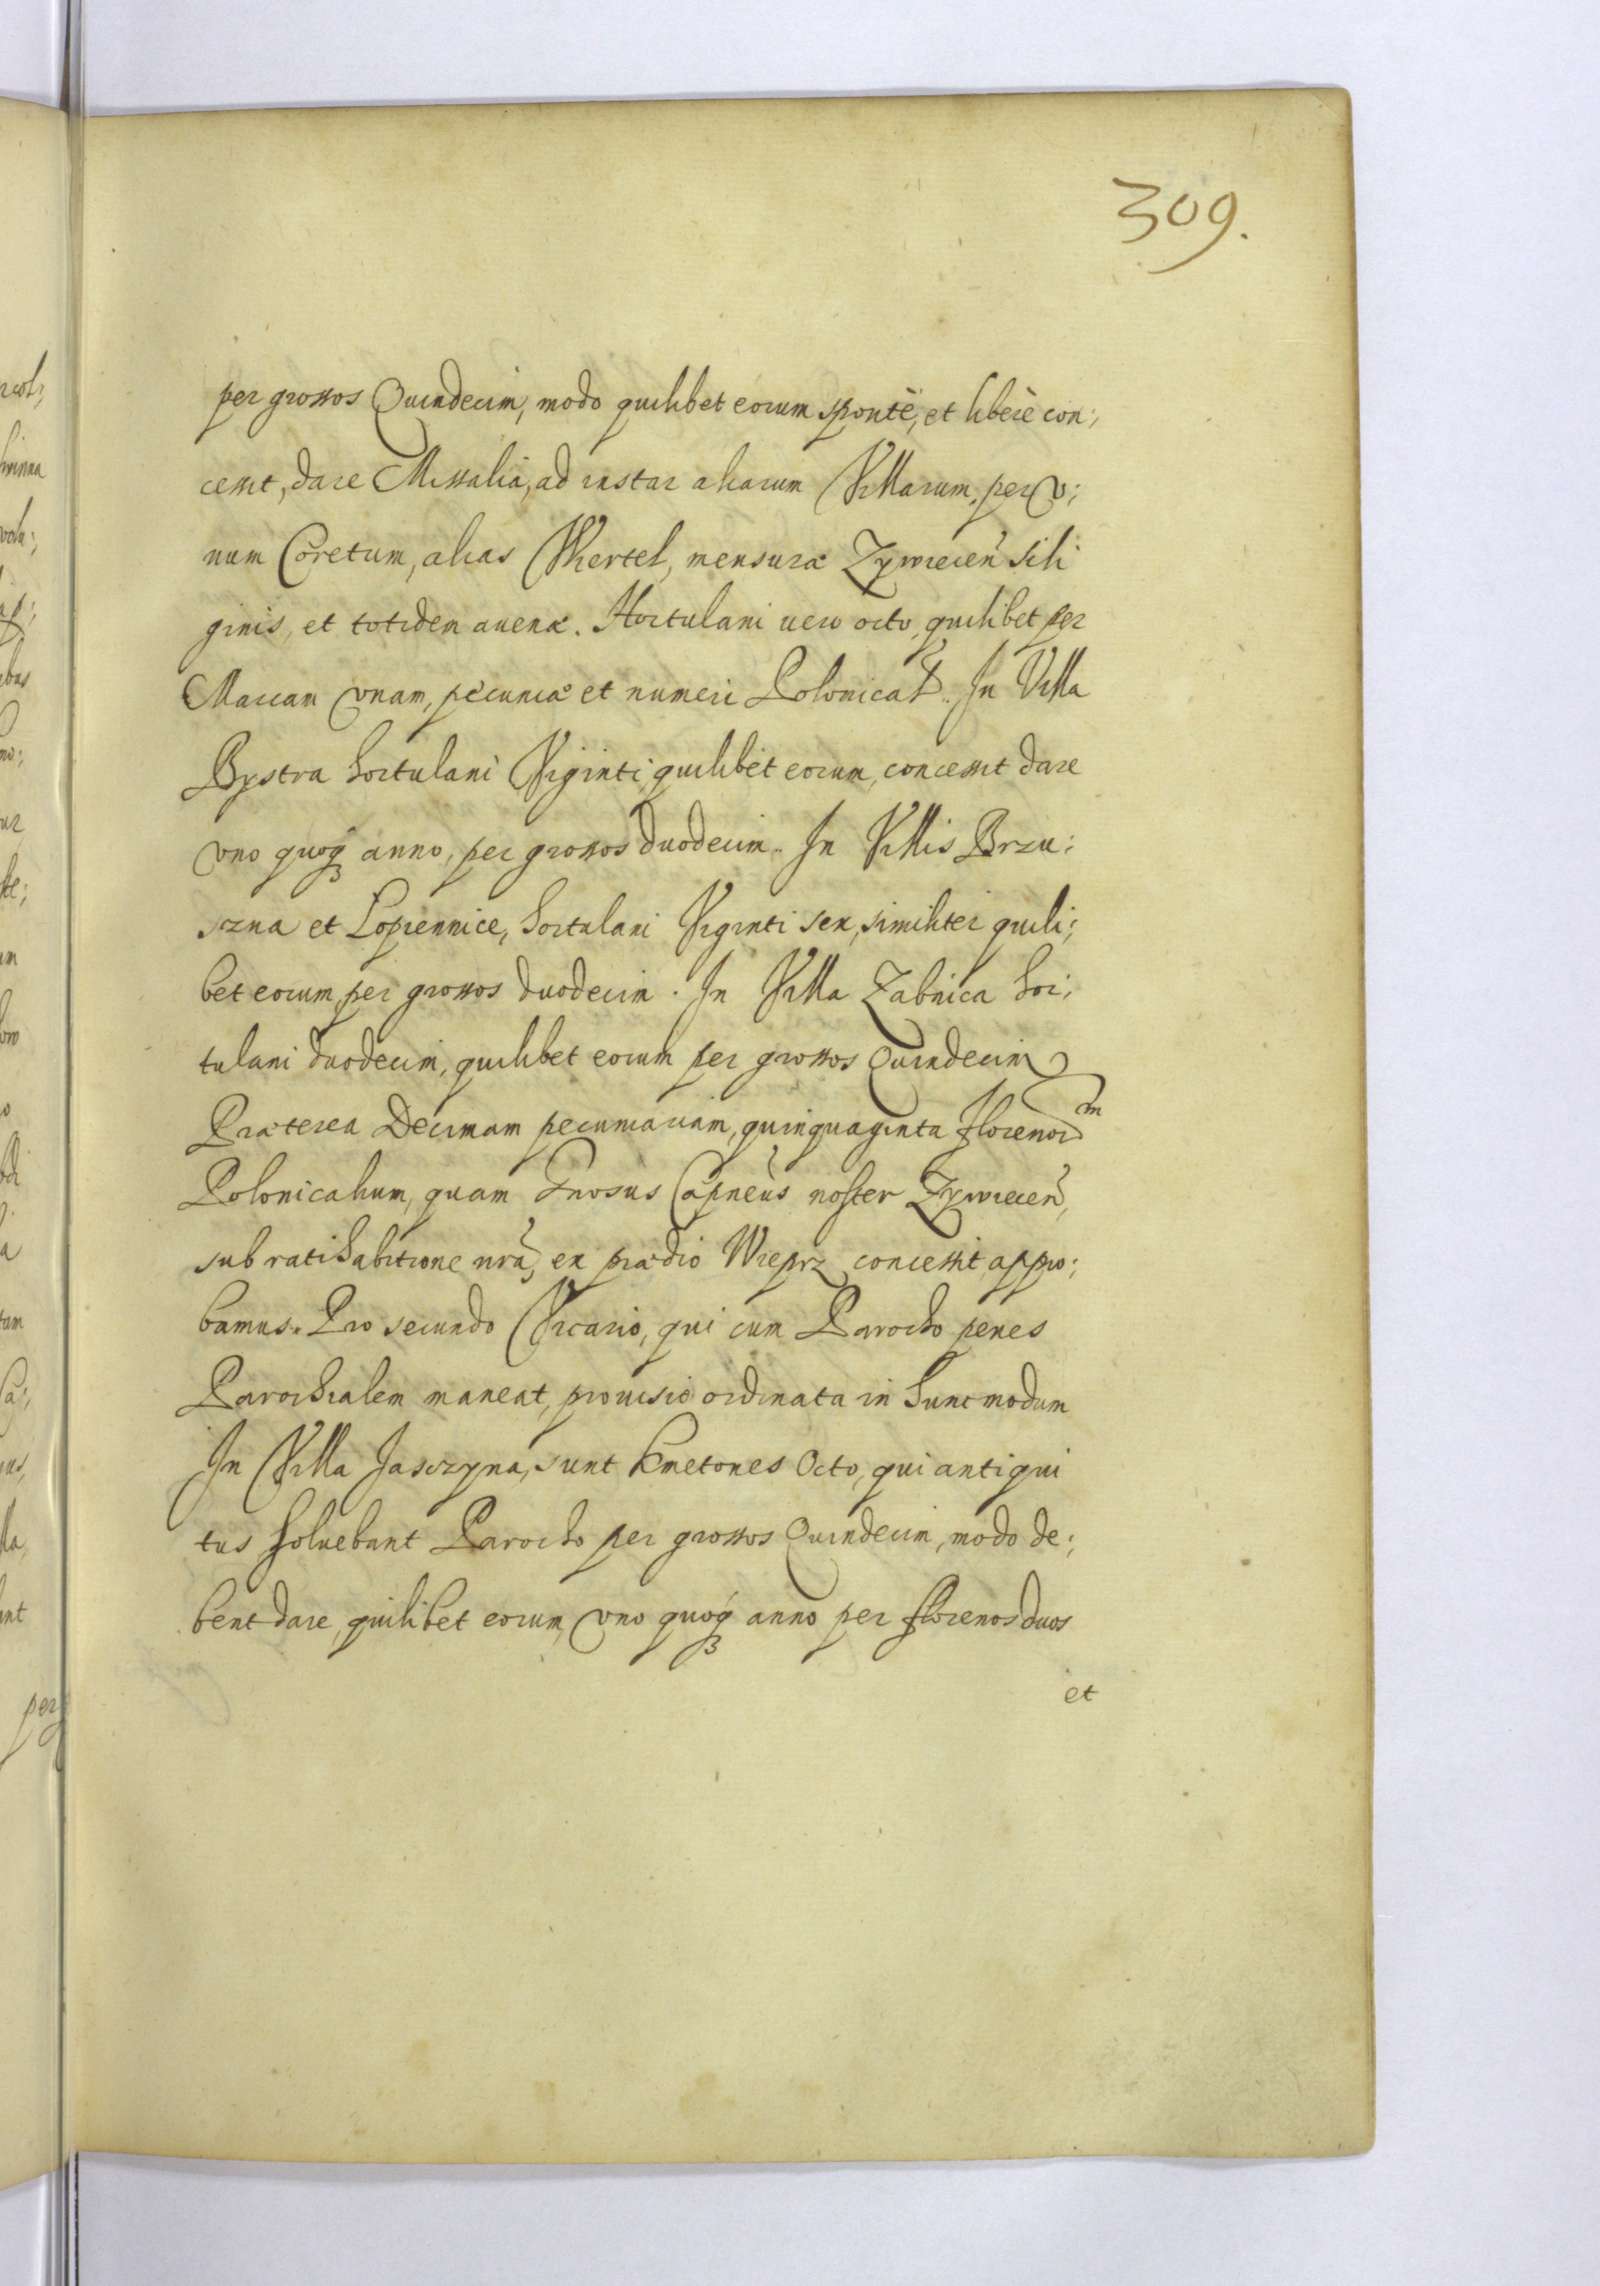 309.
per grossos Quindecim, modo quilibet eorum spontè, et liberè con;
cessit, dare Missalia, ad instar aliarum Villarum, per v;
num Coretum, alias Wiertel, mensuræ Zywiecen̄ sili
ginis, et totidem auenæ. Hortulani uero octo, quilibet per
Marcam vnam, pecuniæ et numeri Polonical. In Villa
Bystra hortulani Viginti, quilibet eorum, concessit dare
vno quoq; anno, per grossos duodecim. In Villis Brzu;
szna et Lopiennice, hortulani Viginti sex, similiter quili;
bet eorum, per grossos duodecim. In Villa Zabnica hor;
tulani duodecim, quilibet eorum per grossos Quindecim
Præterea Decimam pecuniariam, quinquaginta florenor̄m
Polonicalium, quam Gnosus Capneus noster Zywiecen̄,
sub ratihabitione nrā, ex prædio Wieprz concessit, appro;
bamus. Pro secundo Vicario, qui cum Parocho penes
Parochialem maneat, prouisio ordinata in hunc modum
In Villa Jasczyna, sunt Kmetones Octo, qui antiqui
tus soluebant Parocho per grossos Quindecim, modo de;
bent dare, quilibet eorum, vno quoq; anno per florenos duos
et